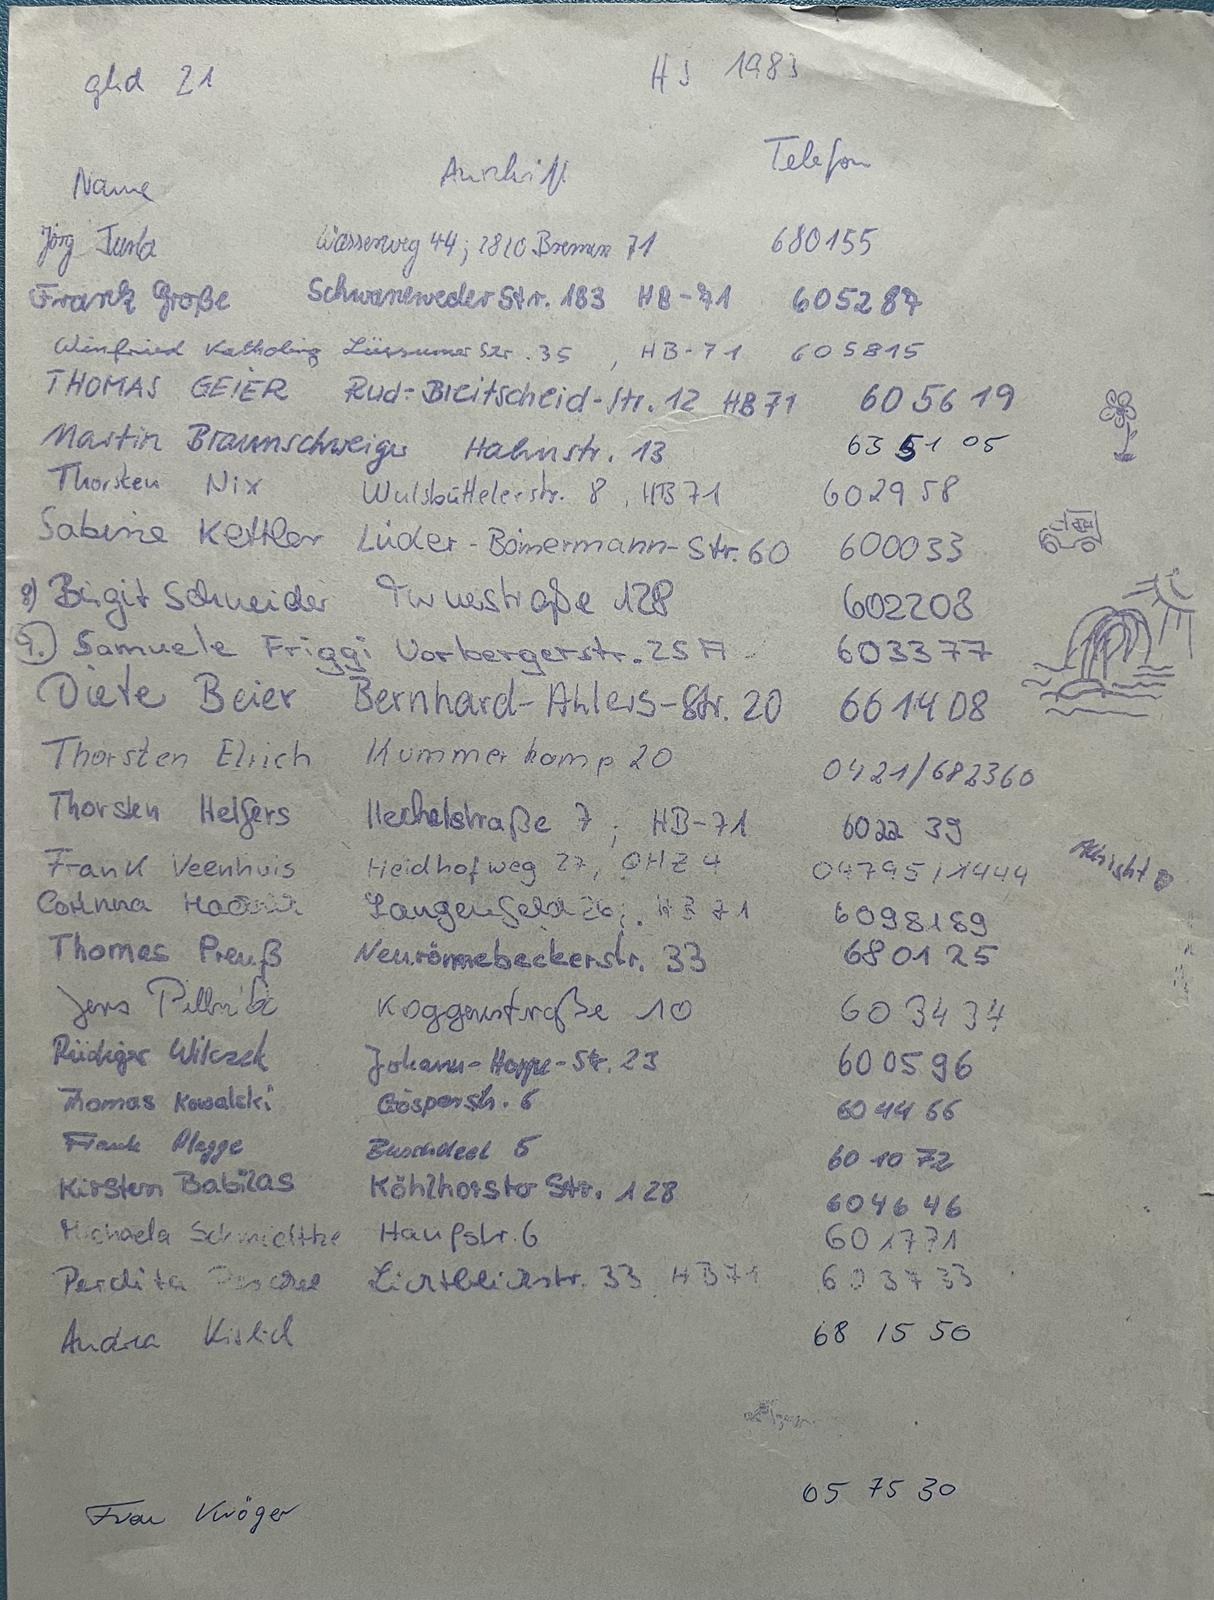 21 HJ 1983
Name Anschrift Telefon
Jörg Wasserweg 44; 2820 Bremen 71 680155
Frank Große Schwaneweder Str. 183 HB-71 605287
Winfried Katholing Lüssumer Str. 35, HB-71 605815
THOMAS GEIER Rud-Breitscheid-Str. 12 HB71 605619
Martin Braunschweiger Hahnstr. 13 63 51 05
Thorsten Nix Wulsbüttelerstr. 8, HB71 602958
Sabine Kettler Lüder-Bömermann-Str. 60 600033
8) Birgit Schneider Turnerstraße 128 602208
9.) Samuele Friggi Vorbergerstr. 25A 603377
Diete Beier Bernhard-Ahlers-Str. 20 661408
Thorsten Elrich Kummerkamp 20 0421/682360
Thorsten Helfers Hechelstraße 7, HB-71 6022 39
Frank Veenhuis Heidhofweg 27, OHZ 4 04795/1444
Allright
Corinna Langenfeld 26, HB 71 6098189
Thomas Preuß Neurönnebeckerstr. 33 680125
Jens Koggenstraße 10 60 34 34
Rüdiger Wilczek Johann-Hoppe-Str. 23 600596
Thomas Kowalski Gösperstr. 6 60 44 66
Frank Plagge Buschdeel 5 60 10 72
Kirsten Babilas Köhlhorster Str. 128 604646
Michaela Schmidtke Haupstr. 6 601771
Perdita Lichtblickstr. 33 HB71 603733
Andrea 68 15 50
Frau Kröger 65 75 30